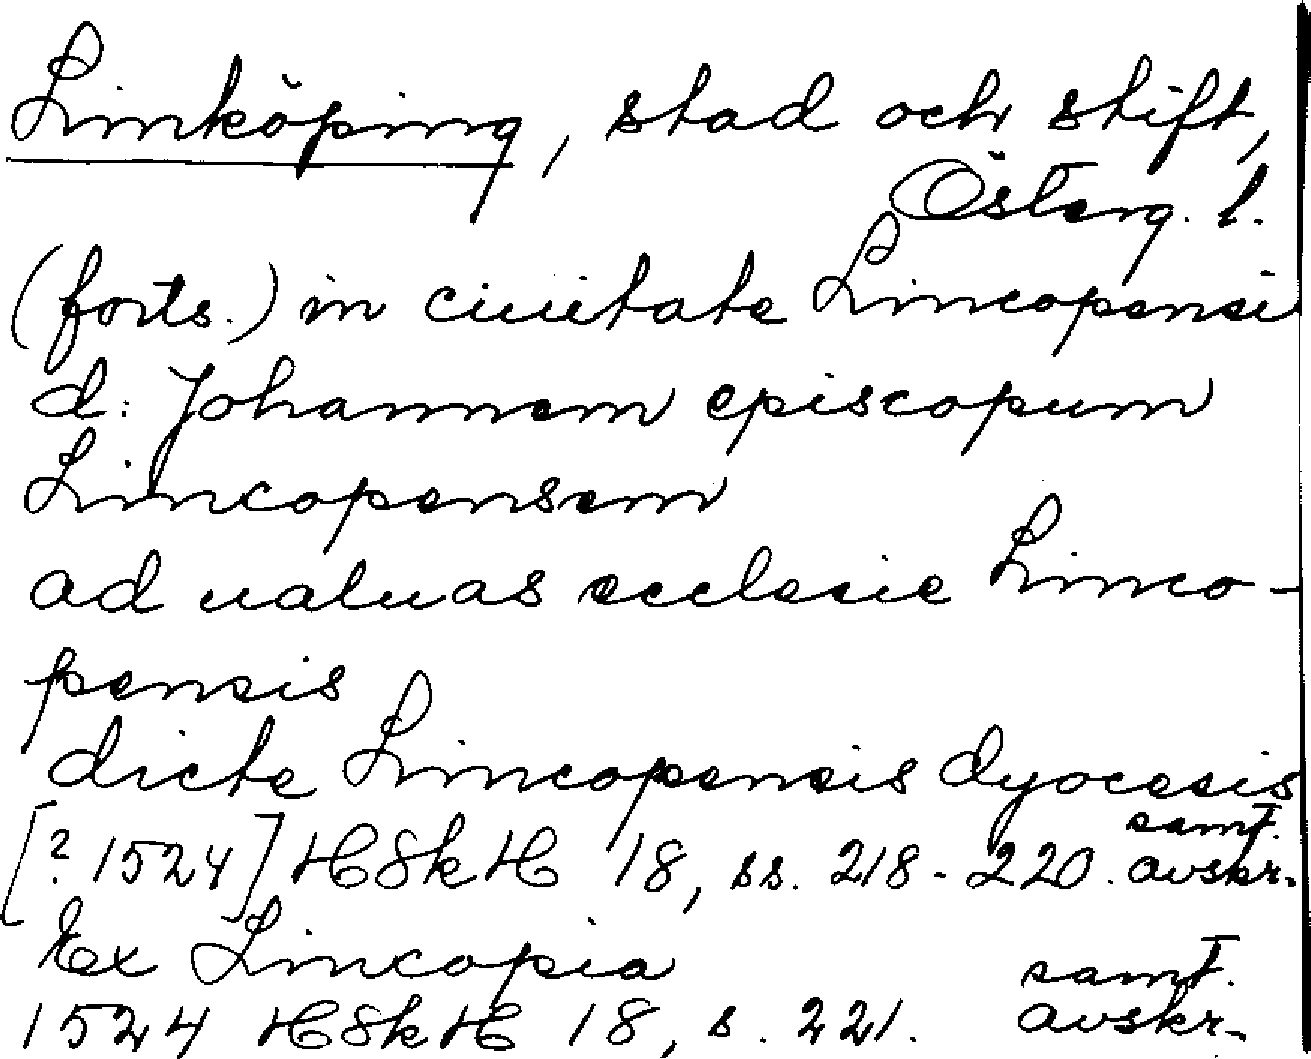 Linköping, stad och stift,
Österg. l.
(forts.) in ciuitate Lincopensi
d: Johannem episcopum
Lincopensem
ad ualuas ecclesie Linco-
pensis
dicte Lincopensis dyocesis
[? 1524] HSkH 18, ss. 218-220. samt. avskr.
Ex Lincopia
1524 HSkH 18, s. 221. samt. avskr.